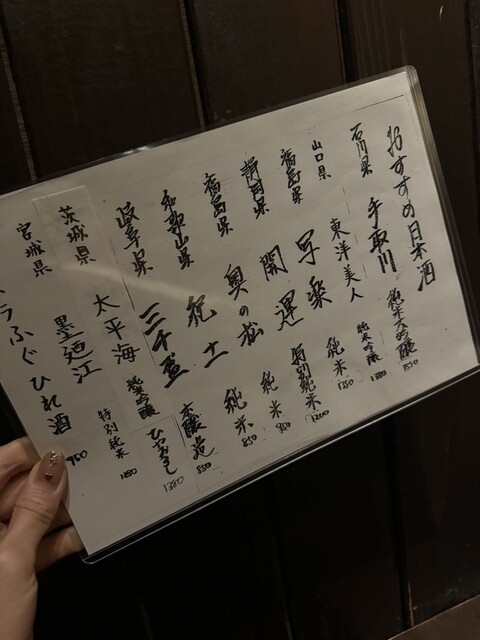 おすすめ日本酒
石川県 手取川 純米大吟醸
山口県 東洋美人 純米吟醸
福島県 写楽 純米
静岡県 開運 特別純米 1200
福島県 奥の松 純米
和歌山県 紀土 純米 850
岐阜県 三千盃 本醸造 850
茨城県 太平海 純米吟醸 ひやおろし 1380
宮城県 墨廼江 特別純米
ラふぐひれ酒 950